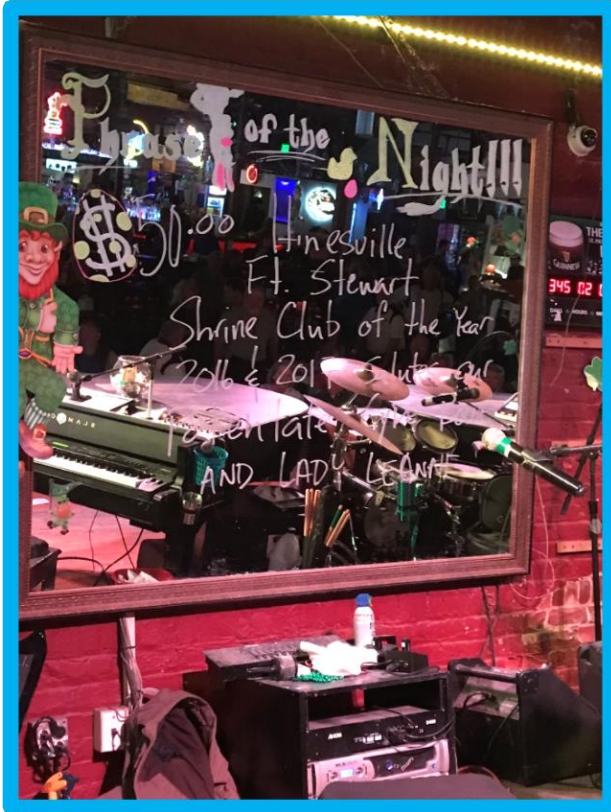 Phrase of the Night!!!
$50.00 Hinesville
Ft. Stewart
Shrine Club of the Year
2016 & 2017 Salute our
Potentate
AND LADY LEANNE
THE
GUINNESS
345 02 0